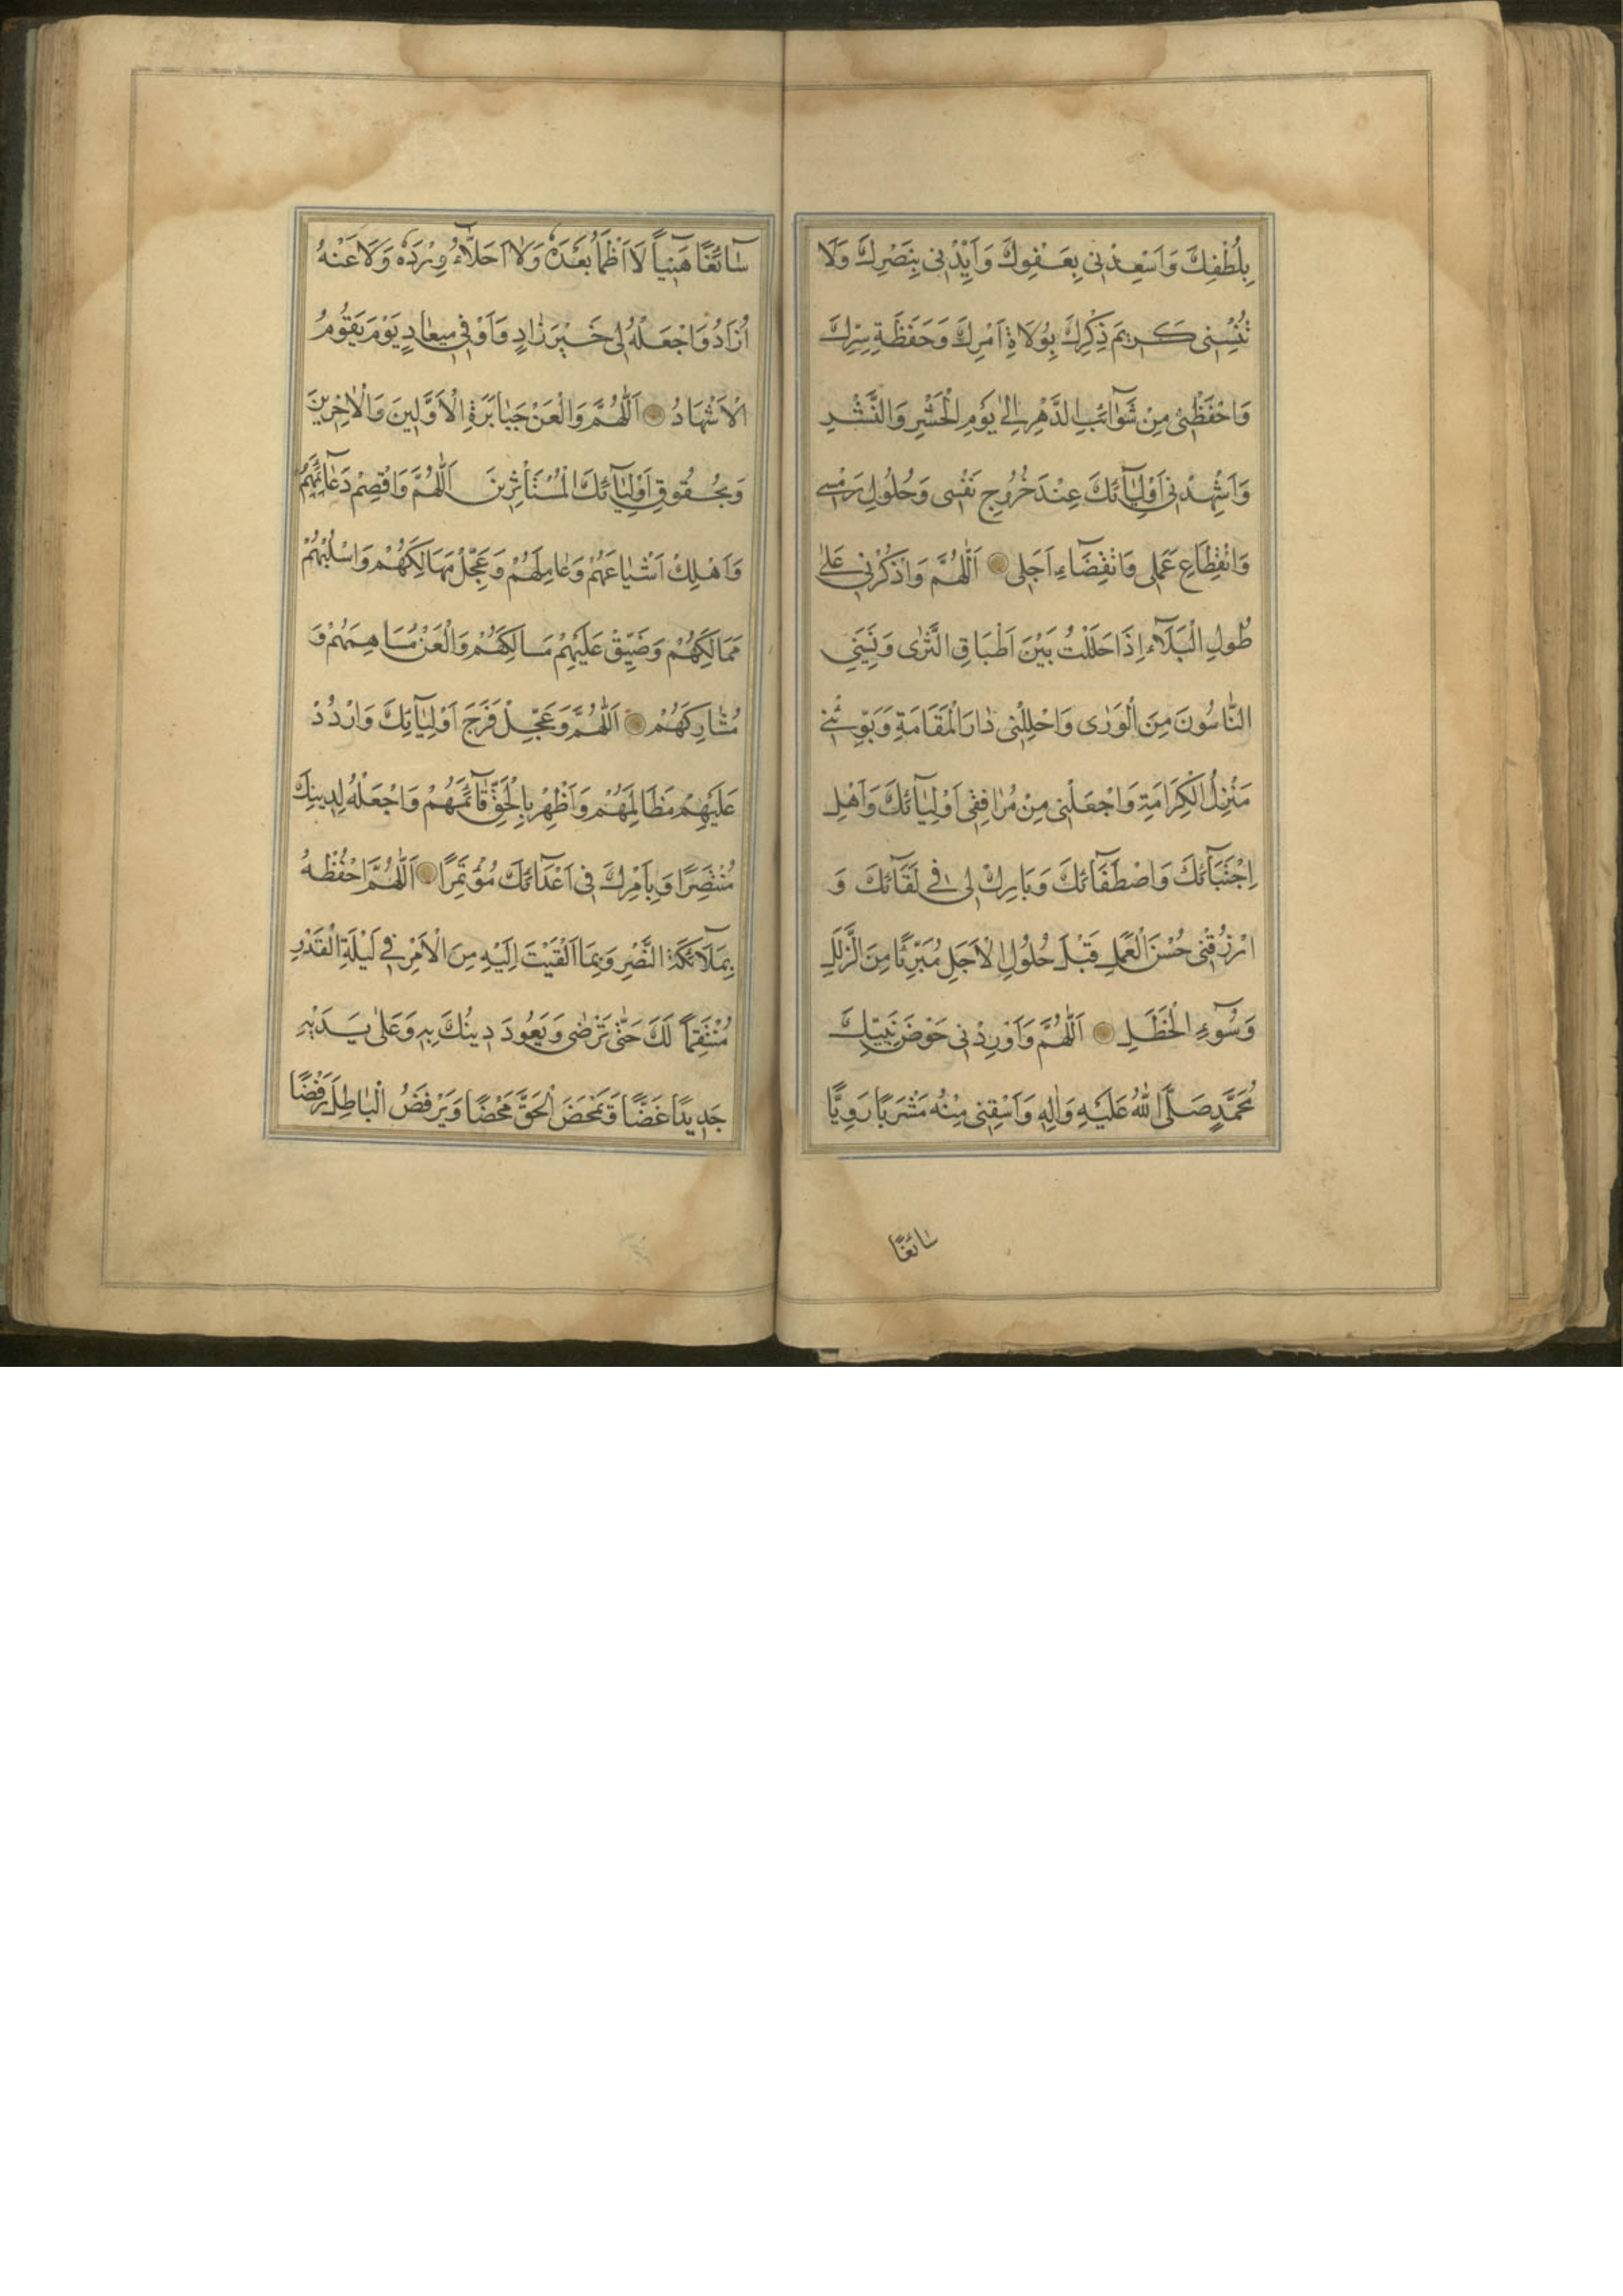 بِلُطْفِكَ وَاَسْعِدْنِى بِعَفْوِكَ وَاَيِّدْنِى بِنَصْرِكَ وَلَا
تُنْسِنِى كَرِيمَ ذِكْرِكَ بِوُلَاةِ اَمْرِكَ وَحَفَظَةِ سِرِّكَ
وَاحْفَظْنِى مِنْ شَوَآئِبِ الدَّهْرِ اِلىٰ يَوْمِ الْحَشْرِ وَالنَّشْرِ
وَاَشْهِدْنِى اَوْلِيَآئَكَ عِنْدَ خُرُوجِ نَفْسِى وَحُلُولِ رَمْسِى
وَانْقِطَاعِ عَمَلِى وَانْقِضَآءِ اَجَلِى اَللّٰهُمَّ وَاذْكُرْنِى عَلىٰ
طُولِ الْبَلَآءِ اِذَا حَلَلْتُ بَيْنَ اَطْبَاقِ الثَّرٰى وَنَسِيَنِى
النَّاسُونَ مِنَ الْوَرٰى وَاَحْلِلْنِى دٰارَ الْمَقَامَةِ وَبَوِّئْنِى
مَنْزِلَ الْكَرَامَةِ وَاجْعَلْنِى مِنْ مُرَافِقِى اَوْلِيَآئِكَ وَاَهْلِ
اِجْتِبَآئِكَ وَاصْطَفَآئِكَ وَبَارِكْ لِى فِى لِقَآئِكَ وَ
ارْزُقْنِى حُسْنَ الْعَمَلِ قَبْلَ حُلُولِ الْاَجَلِ مُبَرِّئًا مِنَ الزَّلَلِ
وَسُوٓءِ الْخَطَلِ اَللّٰهُمَّ وَاَوْرِدْنِى حَوْضَ نَبِيِّكَ
مُحَمَّدٍ صَلَّى اللهُ عَلَيْهِ وَاٰلِهِ وَاَسْقِنِى مِنْهُ مَشْرَبًا رَوِيًّا
سٰائغًا
سَآئِغًا هَنِيئًا لَا اَظْمَاُ بَعْدَهُ وَلَا اُحَلَّاُ وِرْدَهُ وَلَا عَنْهُ
اُزَادُ وَاجْعَلْهُ لِى خَيْرَ زٰادٍ وَاَوْفٰى مِيعٰادٍ يَوْمَ يَقُومُ
الْاَشْهَادُ اَللّٰهُمَّ وَالْعَنْ جَبٰابِرَةَ الْاَوَّلِينَ وَالْاٰخِرِينَ
وَبِحُقُوقِ اَوْلِيَآئِكَ الْمُسْتَأْثِرِينَ اَللّٰهُمَّ وَاقْصِمْ دَعَآئِمَهُمْ
وَاَهْلِكْ اَشْيٰاعَهُمْ وَعٰامِلَهُمْ وَعَجِّلْ مَهَالِكَهُمْ وَاسْلُبْهُمْ
مَمَالِكَهُمْ وَضَيِّقْ عَلَيْهِمْ مَسَالِكَهُمْ وَالْعَنْ مُسَاهِمَهُمْ وَ
مُشٰارِكَهُمْ اَللّٰهُمَّ وَعَجِّلْ فَرَجَ اَوْلِيَآئِكَ وَارْدُدْ
عَلَيْهِمْ مَظَالِمَهُمْ وَاَظْهِرْ بِالْحَقِّ قَآئِمَهُمْ وَاجْعَلْهُ لِدِينِكَ
مُنْتَصِرًا وَبِاَمْرِكَ فِى اَعْدَآئِكَ مُؤْتَمِرًا اَللّٰهُمَّ احْفُظْهُ
بِمَلَآئِكَةِ النَّصْرِ وَبِمَا اَلْقَيْتَ اِلَيْهِ مِنَ الْاَمْرِ فِى لَيْلَةِ الْقَدْرِ
مُنْتَقِمًا لَكَ حَتّٰى تَرْضٰى وَيَعُودَ دِينُكَ بِهِ وَعَلىٰ يَدَيْهِ
جَدِيدًا غَضًّا وَيَمْحَضَ الْحَقَّ مَحْضًا وَيَرْفَضُ الْبَاطِلَ رَفْضًا